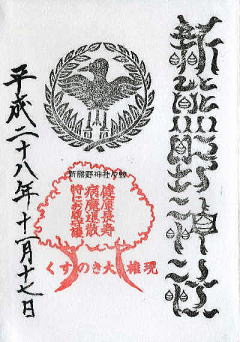 新熊野神社
健康長寿
病魔退散
特にお腹守護
くすのき大権現
平成二十八年十一月十七日